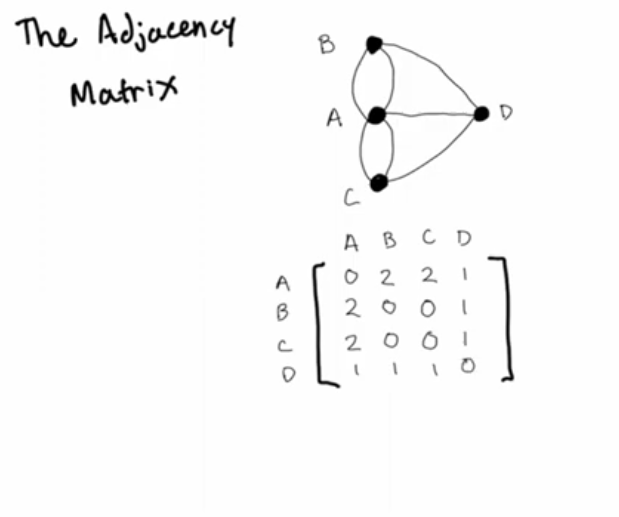 The Adjacency
Matrix
B
A
D
C
A B C D
A 0 2 2 1
B 2 0 0 1
C 2 0 0 1
D 1 1 1 0